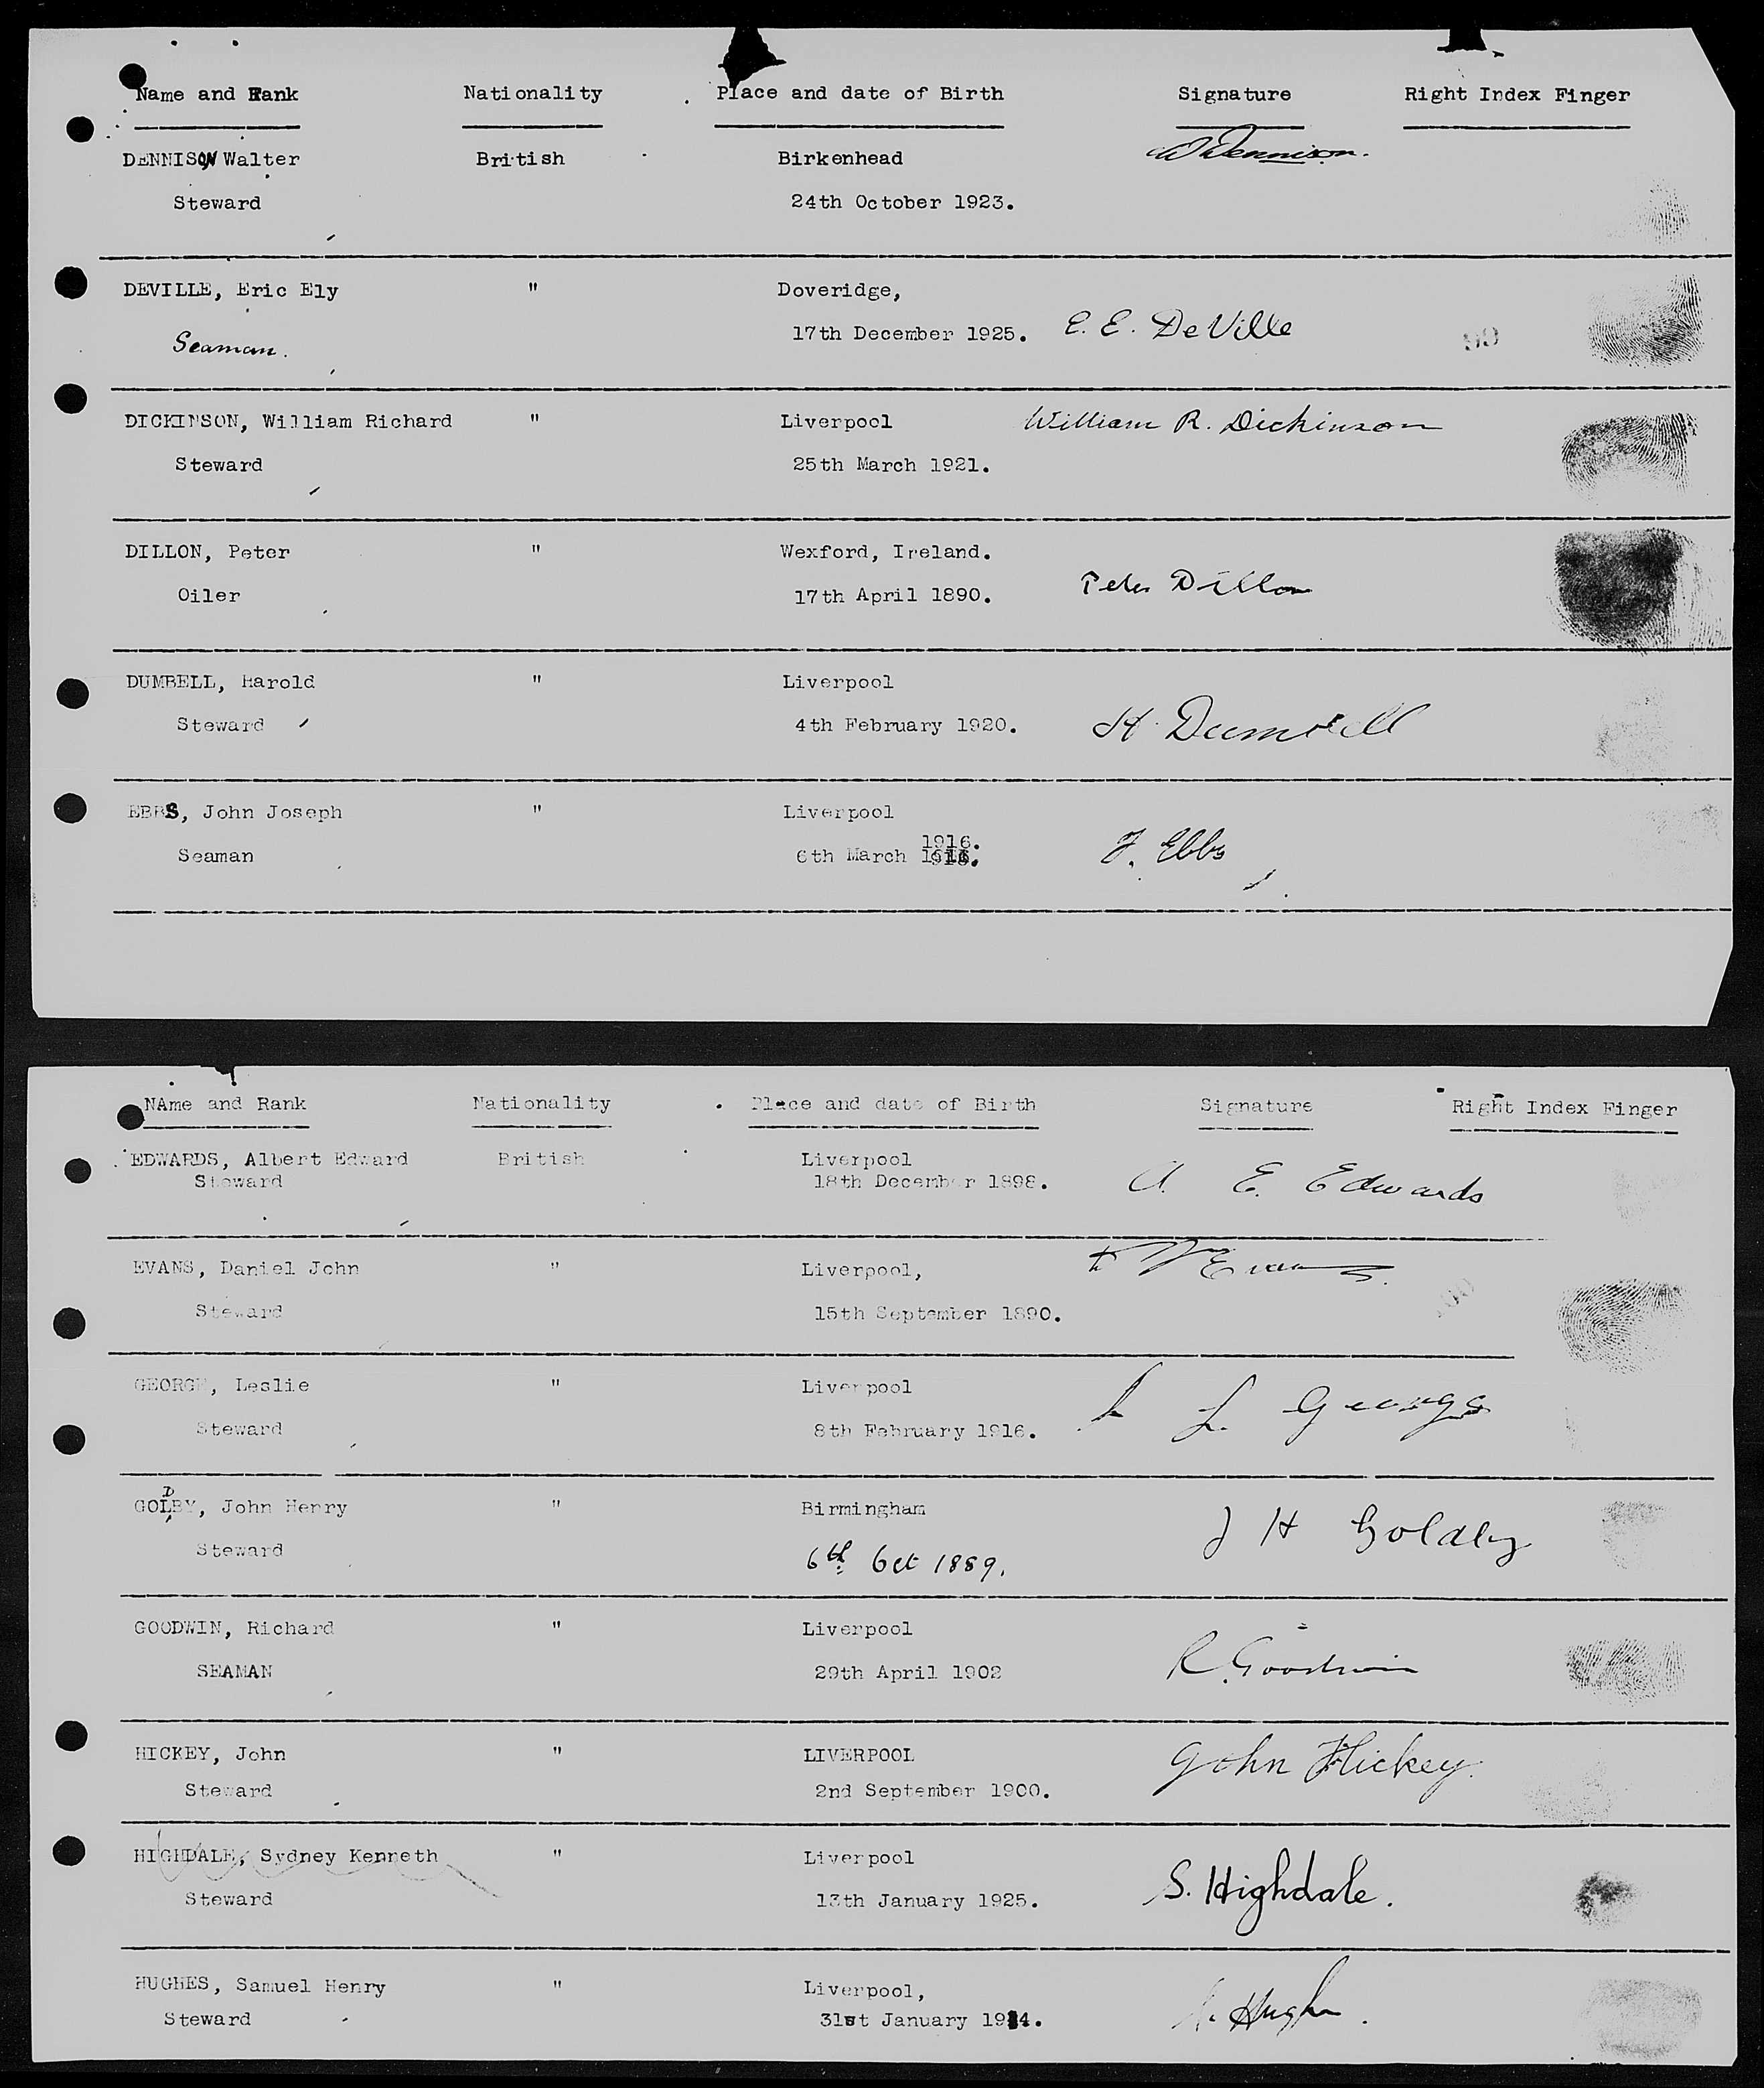 Name and Rank Nationality Place and date of Birth Signature Right Index Finger
DENNISON Walter British Birkenhead W Dennison.
Steward 24th October 1923.
DEVILLE, Eric Ely " Doveridge,
Seaman. 17th December 1925. E. E. DeVille
DICKINSON, William Richard " Liverpool William R. Dickinson
Steward 25th March 1921.
DILLON, Peter " Wexford, Ireland.
Oiler 17th April 1890. Peter Dillon
DUMBELL, Harold " Liverpool
Steward 4th February 1920. H. Dumbell
EBBS, John Joseph " Liverpool
1916.
Seaman 6th March J. Ebbs
NAme and Rank Nationality Place and date of Birth Signature Right Index Finger
EDWARDS, Albert Edward British Liverpool
Steward 18th December 1898. A. E. Edwards
EVANS, Daniel John " Liverpool, Evans
Steward 15th September 1890.
GEORGE, Leslie " Liverpool L. George
Steward 8th February 1916.
D
GOLBY, John Henry " Birmingham J H Goldby
Steward 6th Oct 1889.
GOODWIN, Richard " Liverpool
SEAMAN 29th April 1902 R. Goodwin
HICKEY, John " LIVERPOOL John Hickey.
Steward 2nd September 1900.
HIGHDALE, Sydney Kenneth " Liverpool
Steward 13th January 1925. S. Highdale.
HUGHES, Samuel Henry " Liverpool,
Steward 31st January 1924. Hughes.